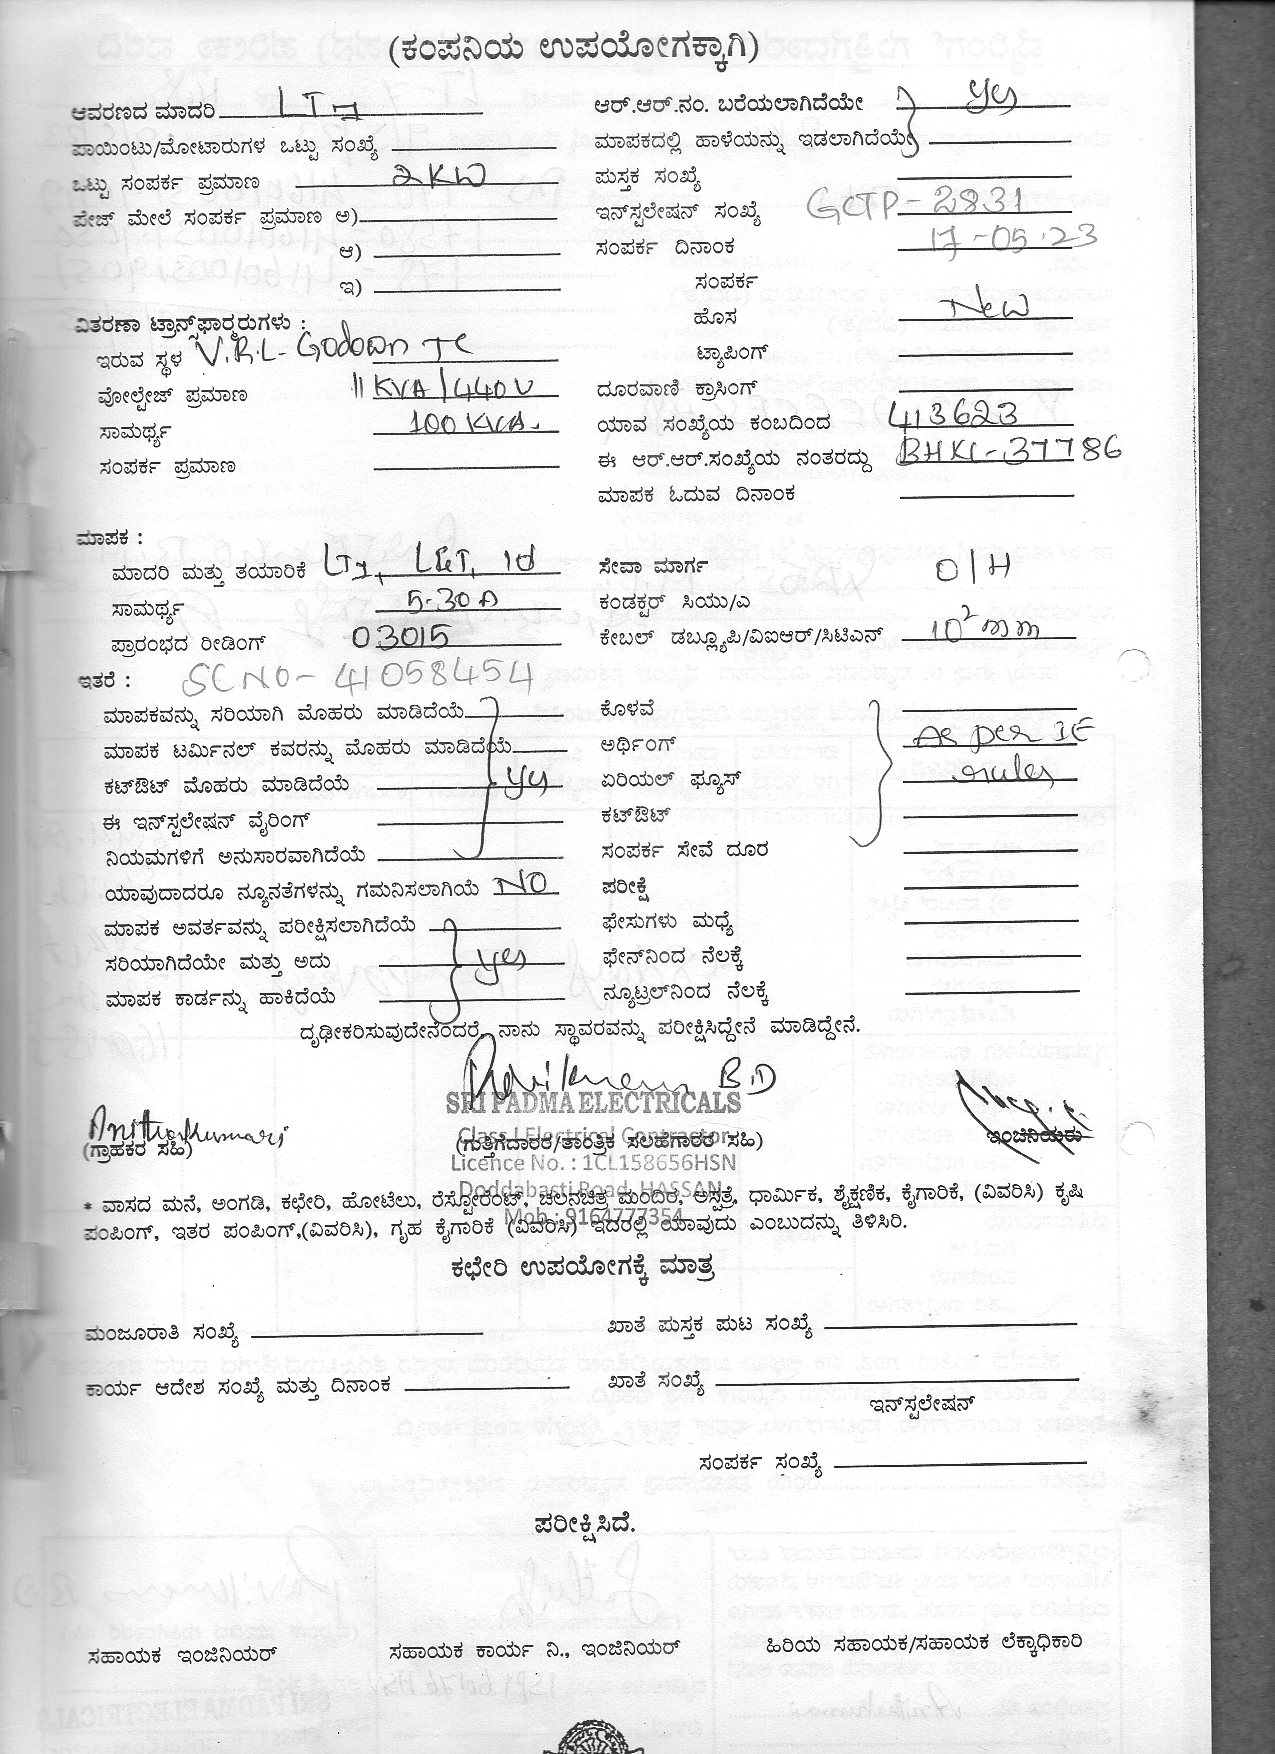 (ಕಂಪನಿಯ ಉಪಯೋಗಕ್ಕಾಗಿ)
ಆವರಣದ ಮಾದರಿ LT1 ಆರ್.ಆರ್.ನಂ. ಬರೆಯಲಾಗಿದೆಯೇ yes
ಪಾಯಿಂಟು/ಮೋಟಾರುಗಳ ಒಟ್ಟು ಸಂಖ್ಯೆ ಮಾಪಕದಲ್ಲಿ ಹಾಳೆಯನ್ನು ಇಡಲಾಗಿದೆಯೇ
ಒಟ್ಟು ಸಂಪರ್ಕ ಪ್ರಮಾಣ 2KW ಪುಸ್ತಕ ಸಂಖ್ಯೆ
ಪೇಜ್ ಮೇಲೆ ಸಂಪರ್ಕ ಪ್ರಮಾಣ ಅ) ಇನ್‌ಸ್ಟಲೇಷನ್ ಸಂಖ್ಯೆ GCTP-2831
ಆ) ಸಂಪರ್ಕ ದಿನಾಂಕ 17-05-23
ಇ) ಸಂಪರ್ಕ
ಹೊಸ New
ವಿತರಣಾ ಟ್ರಾನ್ಸ್‌ಫಾರ್ಮರುಗಳು :
ಇರುವ ಸ್ಥಳ V.R.L- Godown TC ಟ್ಯಾಪಿಂಗ್
ವೋಲ್ಟೇಜ್ ಪ್ರಮಾಣ 11KVA/440V ದೂರವಾಣಿ ಕ್ರಾಸಿಂಗ್
ಸಾಮರ್ಥ್ಯ 100KVA. ಯಾವ ಸಂಖ್ಯೆಯ ಕಂಬದಿಂದ 413623
ಸಂಪರ್ಕ ಪ್ರಮಾಣ ಈ ಆರ್.ಆರ್.ಸಂಖ್ಯೆಯ ನಂತರದ್ದು BHKL-37786
ಮಾಪಕ ಓದುವ ದಿನಾಂಕ
ಮಾಪಕ :
ಮಾದರಿ ಮತ್ತು ತಯಾರಿಕೆ LT1, L&T, 1d ಸೇವಾ ಮಾರ್ಗ O/H
ಸಾಮರ್ಥ್ಯ 5-30A ಕಂಡಕ್ಟರ್ ಸಿಯು/ಎ
ಪ್ರಾರಂಭದ ರೀಡಿಂಗ್ 03015 ಕೇಬಲ್ ಡಬ್ಲ್ಯೂಪಿ/ವಿಐಆರ್/ಸಿಟಿಎನ್ 10²mm
ಇತರೆ : SCNO-41058454
ಮಾಪಕವನ್ನು ಸರಿಯಾಗಿ ಮೊಹರು ಮಾಡಿದೆಯೆ ಕೊಳವೆ
ಮಾಪಕ ಟರ್ಮಿನಲ್ ಕವರನ್ನು ಮೊಹರು ಮಾಡಿದೆಯೆ ಅರ್ಥಿಂಗ್ As per IE
ಕಟ್‌ಔಟ್ ಮೊಹರು ಮಾಡಿದೆಯೆ yes ಏರಿಯಲ್ ಫ್ಯೂಸ್ rules
ಈ ಇನ್‌ಸ್ಟಲೇಷನ್ ವೈರಿಂಗ್ ಕಟ್‌ಔಟ್
ನಿಯಮಗಳಿಗೆ ಅನುಸಾರವಾಗಿದೆಯೆ ಸಂಪರ್ಕ ಸೇವೆ ದೂರ
ಯಾವುದಾದರೂ ನ್ಯೂನತೆಗಳನ್ನು ಗಮನಿಸಲಾಗಿಯೆ NO ಪರೀಕ್ಷೆ
ಮಾಪಕ ಅವರ್ತವನ್ನು ಪರೀಕ್ಷಿಸಲಾಗಿದೆಯೆ ಫೇಸುಗಳು ಮಧ್ಯೆ
ಸರಿಯಾಗಿದೆಯೇ ಮತ್ತು ಅದು yes ಫೇನ್‌ನಿಂದ ನೆಲಕ್ಕೆ
ಮಾಪಕ ಕಾರ್ಡನ್ನು ಹಾಕಿದೆಯೆ ನ್ಯೂಟ್ರಲ್‌ನಿಂದ ನೆಲಕ್ಕೆ
ದೃಢೀಕರಿಸುವುದೇನೆಂದರೆ, ನಾನು ಸ್ಥಾವರವನ್ನು ಪರೀಕ್ಷಿಸಿದ್ದೇನೆ ಮಾಡಿದ್ದೇನೆ.
Ravikumar B.D
SRI PADMA ELECTRICALS
Anithakumari
Class I Electrical Contractor
(ಗ್ರಾಹಕರ ಸಹಿ) (ಗುತ್ತಿಗೆದಾರರ/ತಾಂತ್ರಿಕ ಸಲಹೆಗಾರರ ಸಹಿ) ಇಂಜಿನಿಯರು
Licence No. : 1CL158656HSN
Doddabasti Road, HASSAN
* ವಾಸದ ಮನೆ, ಅಂಗಡಿ, ಕಛೇರಿ, ಹೋಟೆಲು, ರೆಸ್ಟೋರೆಂಟ್, ಚಲನಚಿತ್ರ ಮಂದಿರ, ಆಸ್ಪತ್ರೆ, ಧಾರ್ಮಿಕ, ಶೈಕ್ಷಣಿಕ, ಕೈಗಾರಿಕೆ, (ವಿವರಿಸಿ) ಕೃಷಿ
Mob : 9164777354
ಪಂಪಿಂಗ್, ಇತರ ಪಂಪಿಂಗ್,(ವಿವರಿಸಿ), ಗೃಹ ಕೈಗಾರಿಕೆ (ವಿವರಿಸಿ) ಇದರಲ್ಲಿ ಯಾವುದು ಎಂಬುದನ್ನು ತಿಳಿಸಿರಿ.
ಕಛೇರಿ ಉಪಯೋಗಕ್ಕೆ ಮಾತ್ರ
ಮಂಜೂರಾತಿ ಸಂಖ್ಯೆ ಖಾತೆ ಪುಸ್ತಕ ಪುಟ ಸಂಖ್ಯೆ
ಕಾರ್ಯ ಆದೇಶ ಸಂಖ್ಯೆ ಮತ್ತು ದಿನಾಂಕ ಖಾತೆ ಸಂಖ್ಯೆ
ಇನ್‌ಸ್ಟಲೇಷನ್
ಸಂಪರ್ಕ ಸಂಖ್ಯೆ
ಪರೀಕ್ಷಿಸಿದೆ.
ಸಹಾಯಕ ಇಂಜಿನಿಯರ್ ಸಹಾಯಕ ಕಾರ್ಯ ನಿ., ಇಂಜಿನಿಯರ್ ಹಿರಿಯ ಸಹಾಯಕ/ಸಹಾಯಕ ಲೆಕ್ಕಾಧಿಕಾರಿ